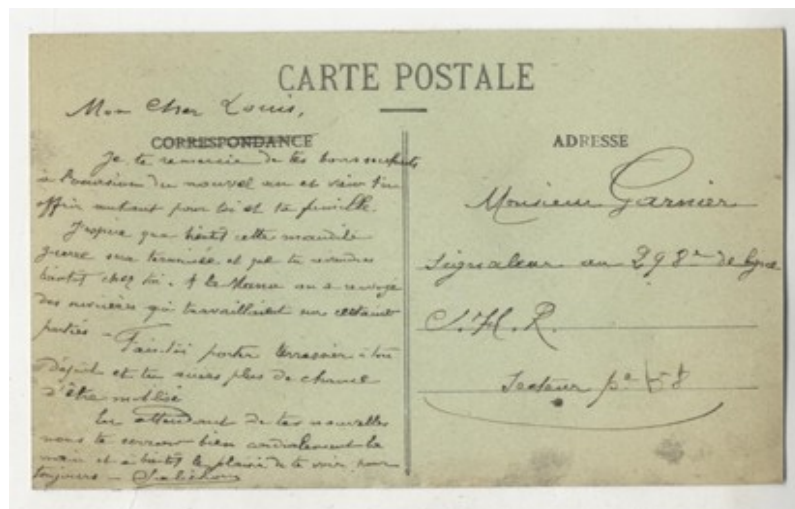 CARTE POSTALE
Mon Cher Louis,
CORRESPONDANCE
Je te remercie de tes bons souhaits
à l'occasion du nouvel an et viens t'en
offrir autant pour toi et ta famille.
J'espère que bientôt cette maudite
guerre sera terminée et que tu reviendras
bientôt chez toi. A la Mana on a renvoyé
des ouvrières qui travaillaient sur certaines
parties -
Fais-toi porter terrassier à ton
Dépôt et tu auras plus de chance
d'être mobilisé
En attendant de tes nouvelles
nous te serrons bien cordialement la
main et à bientôt le plaisir de te voir pour
toujours -
ADRESSE
Monsieur Garnier
Signaleur au 298e de ligne
S.H.R.
Secteur